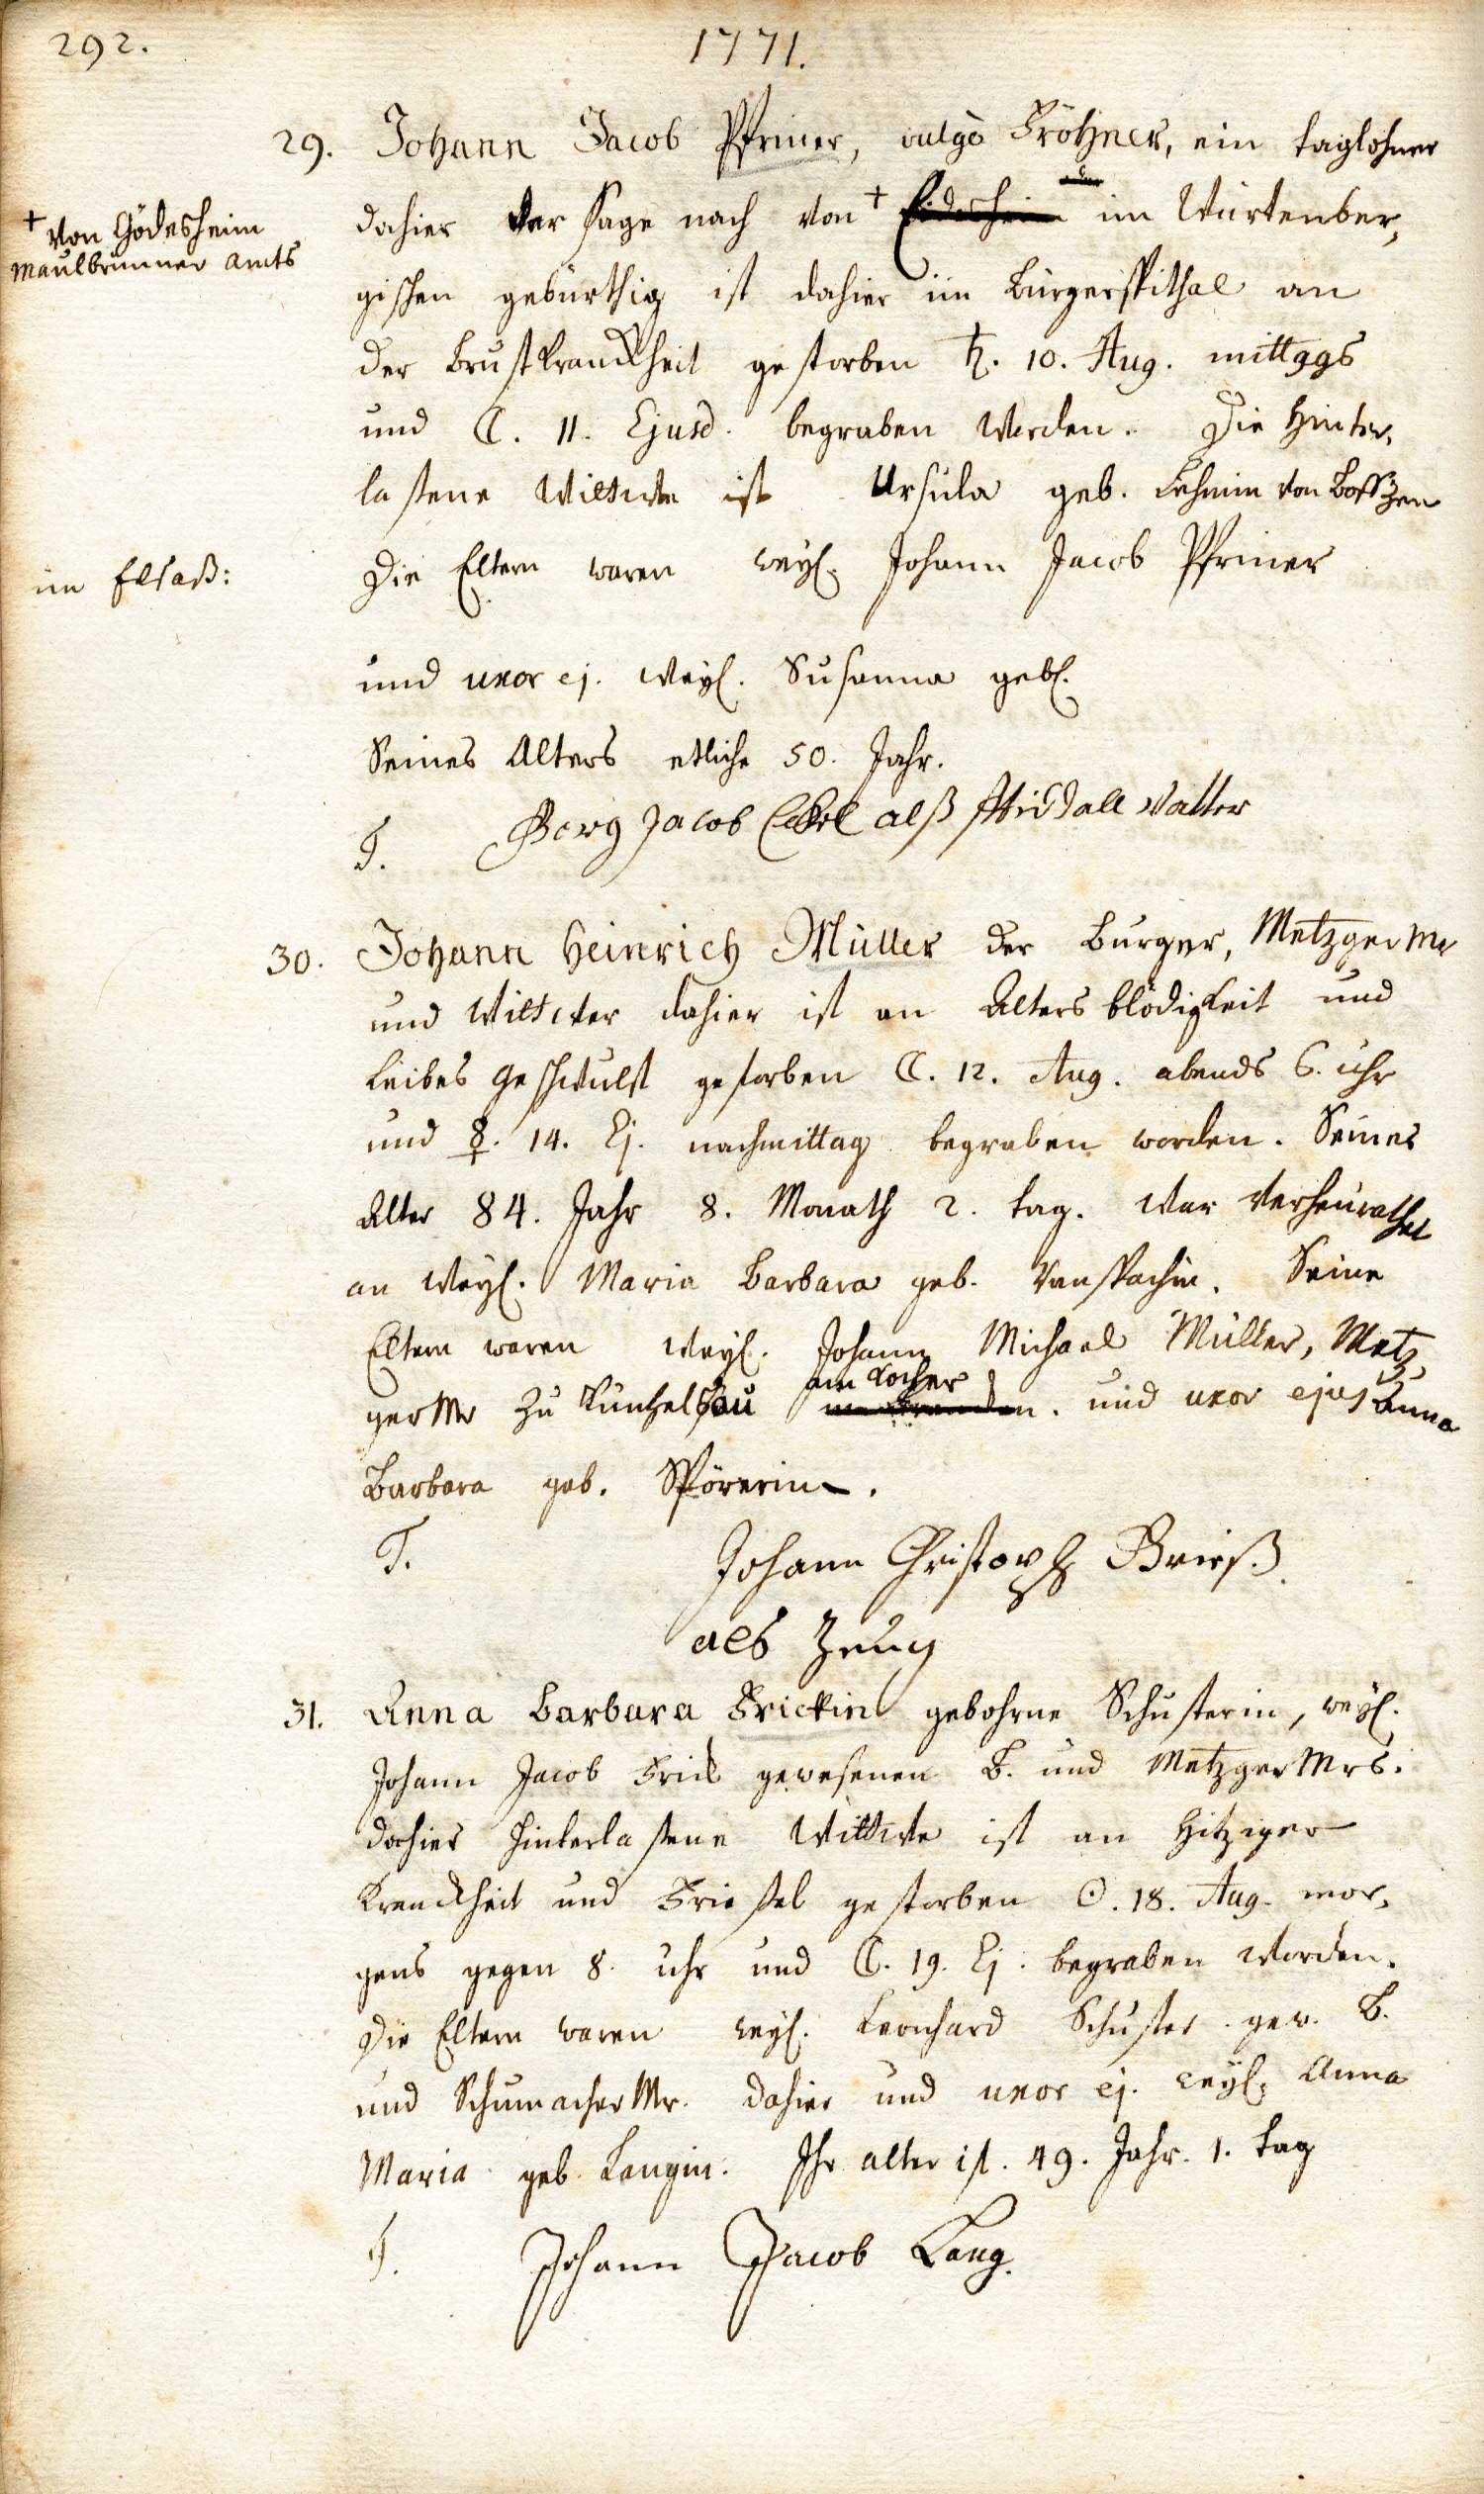 292.
1771.
29. Johann Jacob Pfriner, vulgò Fröhner, ein taglöhner
dahier der sage nach von + Eidesheim im Würtenber,
+ von Gödesheim
Maulbrunner Amts
gischen gebürthig ist dahier im Bürgerspithal an
der Brustkranckheit gestorben ♄. 10. Aug. mittags
und ☾. 11. Ejusd. begraben worden. Die hinter,
lassene Wittwe ist Ursula geb. Lehnin von
im Elsaß:
Die Eltern waren weyl. Johann Jacob Pfriner
und uxor ej. weyl. Susanna gebl.
Seines Alters etliche 50. Jahr.
T. Georg Jacob Eckel alß spiddall Vatter
30. Johann Heinrich Müller der Burger, Metzger Mr
und Wittwer dahier ist an Alters blödigkeit und
Leibes geschwulst gestorben ☾. 12. Aug. abends 6. uhr
und ☿. 14. Ej. nachmittag begraben worden. Seines
Alter 84. Jahr 8. Monath 2. tag. war verheurathet
an weyl. Maria Barbara geb. Vanspachin. Seine
Eltern waren weyl. Johann Michael Müller, Metz,
ger Mr zu Künzelsau am Kocher und uxor ejus Anna
Barbara geb. Spörerin.
T. Johann Christoph Brieß
als Zeug
31. Anna Barbara Frickin gebohrne Schusterin, weyl.
Johann Jacob Frick gewesenen B. und Metzger Mrs.
dahier hinterlassene Wittwe ist an hitziger
Kranckheit und Friessel gestorben ☉. 18. Aug. mor,
gens gegen 8. uhr und ☾. 19. Ej. begraben worden.
Die Eltern waren weyl. Leonhard Schuster gew. B.
und Schumacher Mr. dahier und uxor ej. weyl. Anna
Maria geb. Langin. Ihr alter ist. 49. Jahr. 1. tag
T. Johann Jacob Lang.